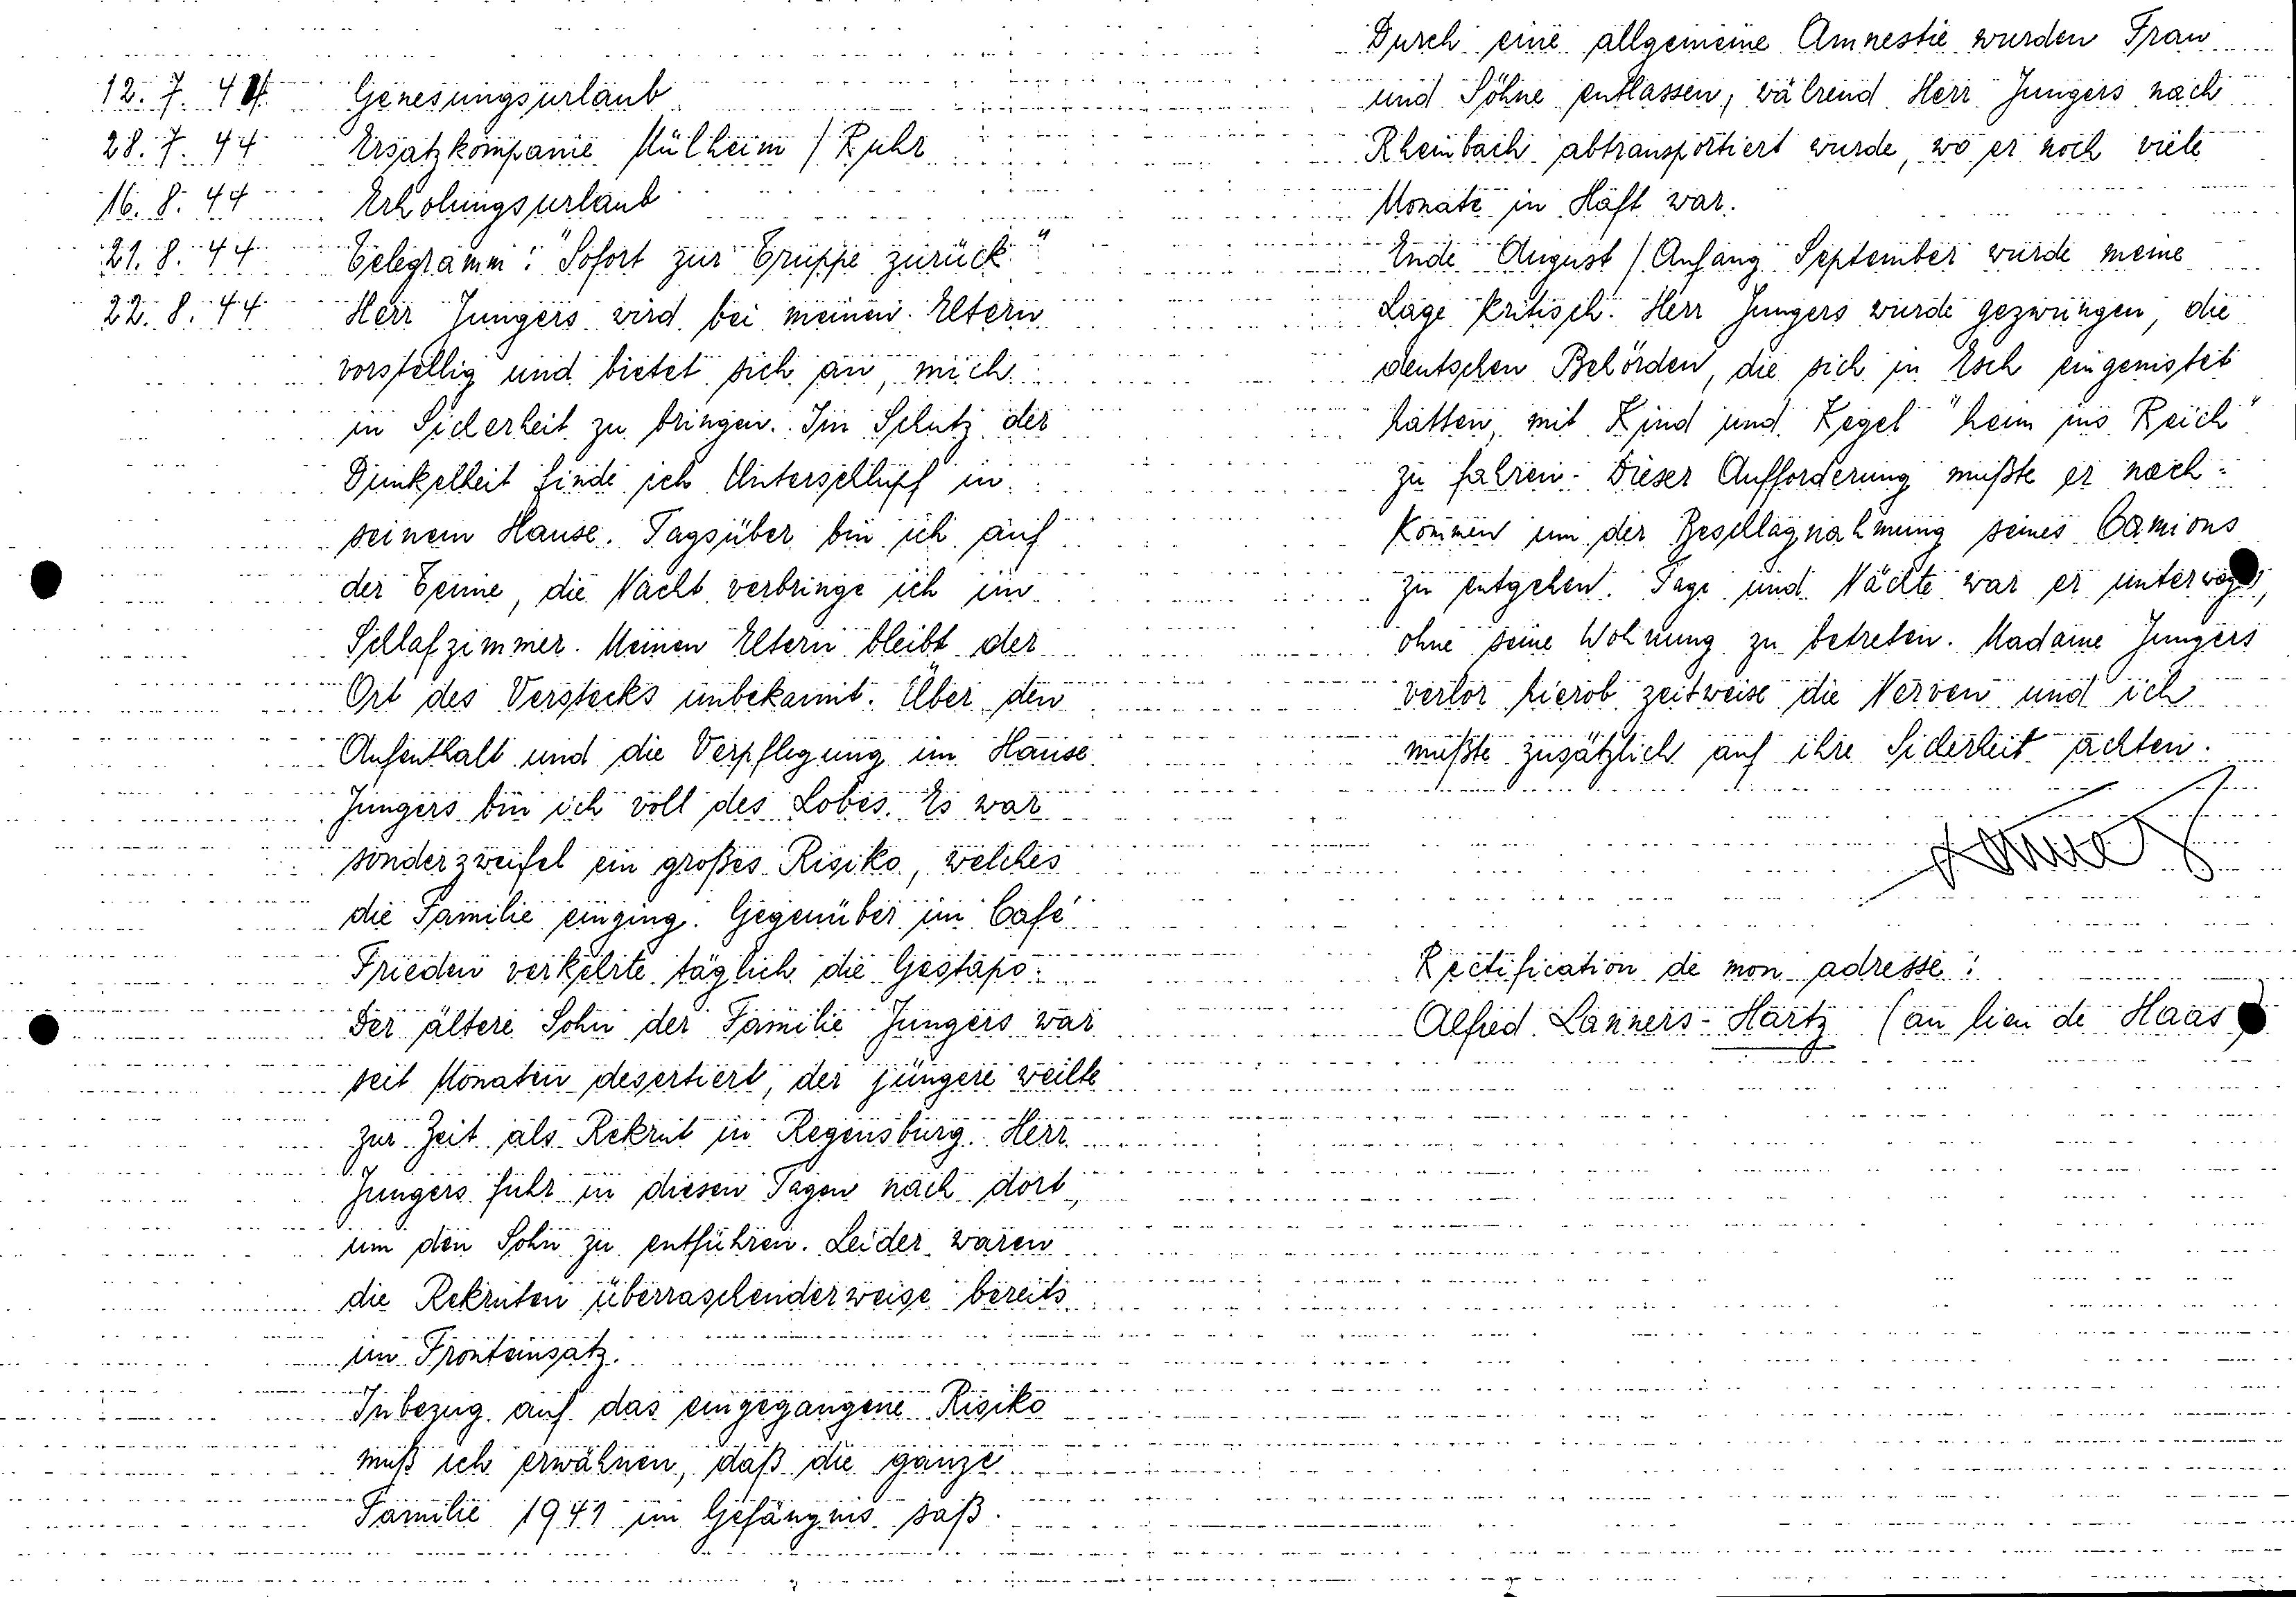 12. 7. 44 Genesungsurlaub
28. 7. 44 Ersatzkompanie Mülheim / Ruhr
16. 8. 44 Erholungsurlaub
21. 8. 44 Telegramm: "Sofort zur Truppe zurück"
22. 8. 44 Herr Jungers wird bei meinen Eltern
vorstellig und bietet sich an, mich
in Sicherheit zu bringen. Im Schutz der
Dunkelheit finde ich Unterschlupf in
seinem Hause. Tagsüber bin ich auf
der Tenne, die Nacht verbringe ich im
Schlafzimmer. Meinen Eltern bleibt der
Ort des Verstecks unbekannt. Über den
Aufenthalt und die Verpflegung im Hause
Jungers bin ich voll des Lobes. Es war
sonderzweifel ein großes Risiko, welches
die Familie einging. Gegenüber im Café
Frieden verkehrte täglich die Gestapo.
Der ältere Sohn der Familie Jungers war
seit Monaten desertiert, der jüngere weilte
zur Zeit als Rekrut in Regensburg. Herr
Jungers fuhr in diesen Tagen nach dort,
um den Sohn zu entführen. Leider waren
die Rekruten überraschenderweise bereits
im Fronteinsatz.
Inbezug auf das eingegangene Risiko
muß ich erwähnen, daß die ganze
Familie 1941 im Gefängnis saß.
Durch eine allgemeine Amnestie wurden Frau
und Söhne entlassen, während Herr Jungers nach
Rheinbach abtransportiert wurde, wo er noch viele
Monate in Haft war.
Ende August / Anfang September wurde meine
Lage kritisch. Herr Jungers wurde gezwungen, die
deutschen Behörden, die sich in Esch eingenistet
hatten, mit Kind und Kegel "heim ins Reich"
zu fahren. Dieser Aufforderung mußte er nach-
kommen um der Beschlagnahmung seines Camions
zu entgehen. Tage und Nächte war er unterwegs,
ohne seine Wohnung zu betreten. Madame Jungers
verlor hierob zeitweise die Nerven und ich
mußte zusätzlich auf ihre Sicherheit achten.
Rectification de mon adresse:
Alfred Lanners-Hartz (au lieu de Haas)